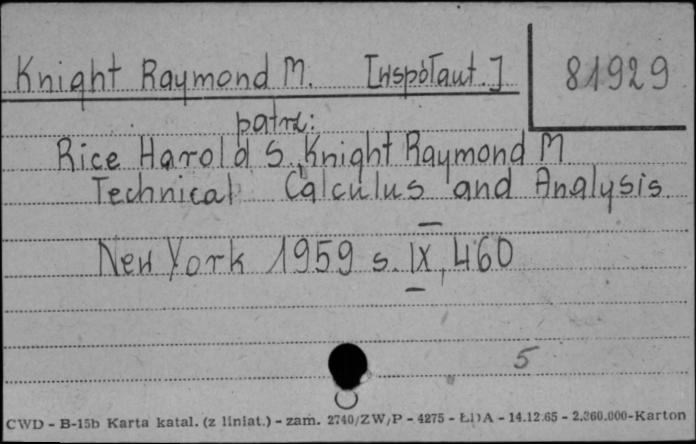 Knight Raymond M. [współaut.] 81929
patrz:
Rice Harold S. Knight Raymond M
Technical Calculus and Analysis
New York 1959 s. IX, 460
5
CWD - B-15b Karta katal. (z liniat.) - zam. 2740/ZW/P - 4275 - ŁDA - 14.12.65 - 2.360.000-Karton